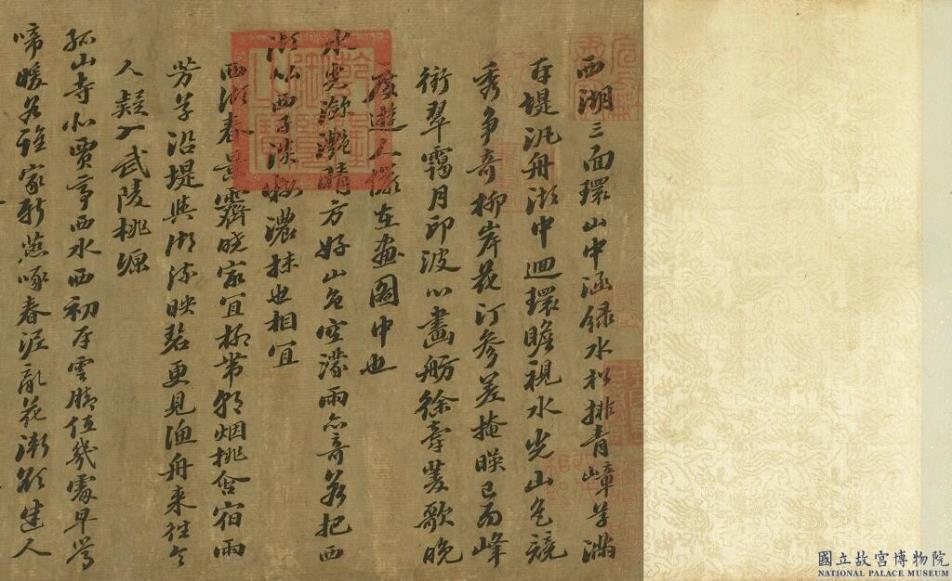 西湖三面環山中涵綠水松排青嶂草滿
平堤汎舟湖中迴環瞻視水光山色競
秀爭奇柳岸花汀參差掩映已而峰
銜翠靄月印波心畫舫徐牽菱歌晚
度遊人儼在畫圖中也
水光瀲灧晴方好山色空濛雨亦奇若把西
湖比西子淡粧濃抹也相宜
西湖春景霽曉最宜柳帶朝烟桃含宿雨
芳草沿堤與湖流映碧更見漁舟来往令
人疑入武陵桃源
孤山寺北賈亭西水面初平雲腳低幾處早鶯
啼暖誰家新燕啄春泥亂花漸欲迷人
乾隆御覽之寶
國立故宮博物院
NATIONAL PALACE MUSEUM